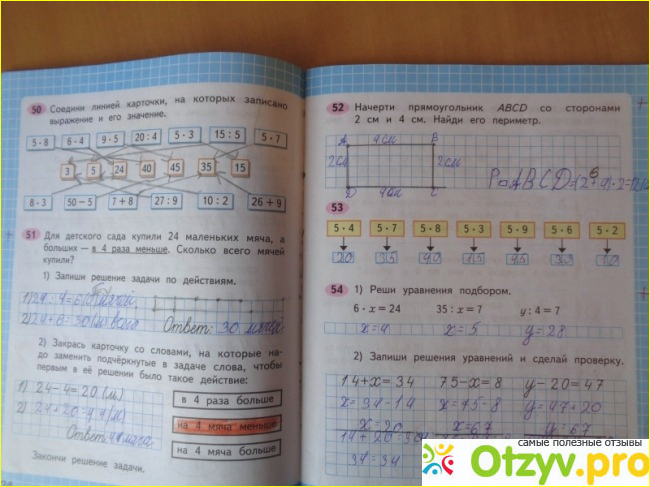 50 Соедини линией карточки, на которых записано
выражение и его значение.
5·8 6·4 9·5 20:4 5·3 15:5 5·7
3 5 24 40 45 35 15
8·3 50−5 7+8 27:9 10:2 26+9
51 Для детского сада купили 24 маленьких мяча, а
больших — в 4 раза меньше. Сколько всего мячей
купили?
1) Запиши решение задачи по действиям.
1) 24:4=6(
2) 24+6=30(м) всего Ответ: 30 мячей
2) Закрась карточку со словами, на которые на-
до заменить подчёркнутые в задаче слова, чтобы
первым в её решении было такое действие:
1) 24−4=20 (м)
в 4 раза больше
2) 24+20=44(м)
на 4 мяча меньше
Ответ: 44 мяча
на 4 мяча больше
Закончи решение задачи.
52 Начерти прямоугольник ABCD со сторонами
2 см и 4 см. Найди его периметр.
A 4см B
2см 2см
D 4см C
P ABCD=(2+4)·2=12
6
53
5·4 5·7 5·8 5·3 5·9 5·6 5·2
20 35 40 15 45 30 10
54 1) Реши уравнения подбором.
6·x=24 35:x=7 y:4=7
x=4 x=5 y=28
2) Запиши решения уравнений и сделай проверку.
14+x=34 75−x=8 y−20=47
x=34−14 x=75−8 y=47+20
x=20 x=67 y=67
14+20=34
34=34
самые полезные отзывы
Otzyv.pro